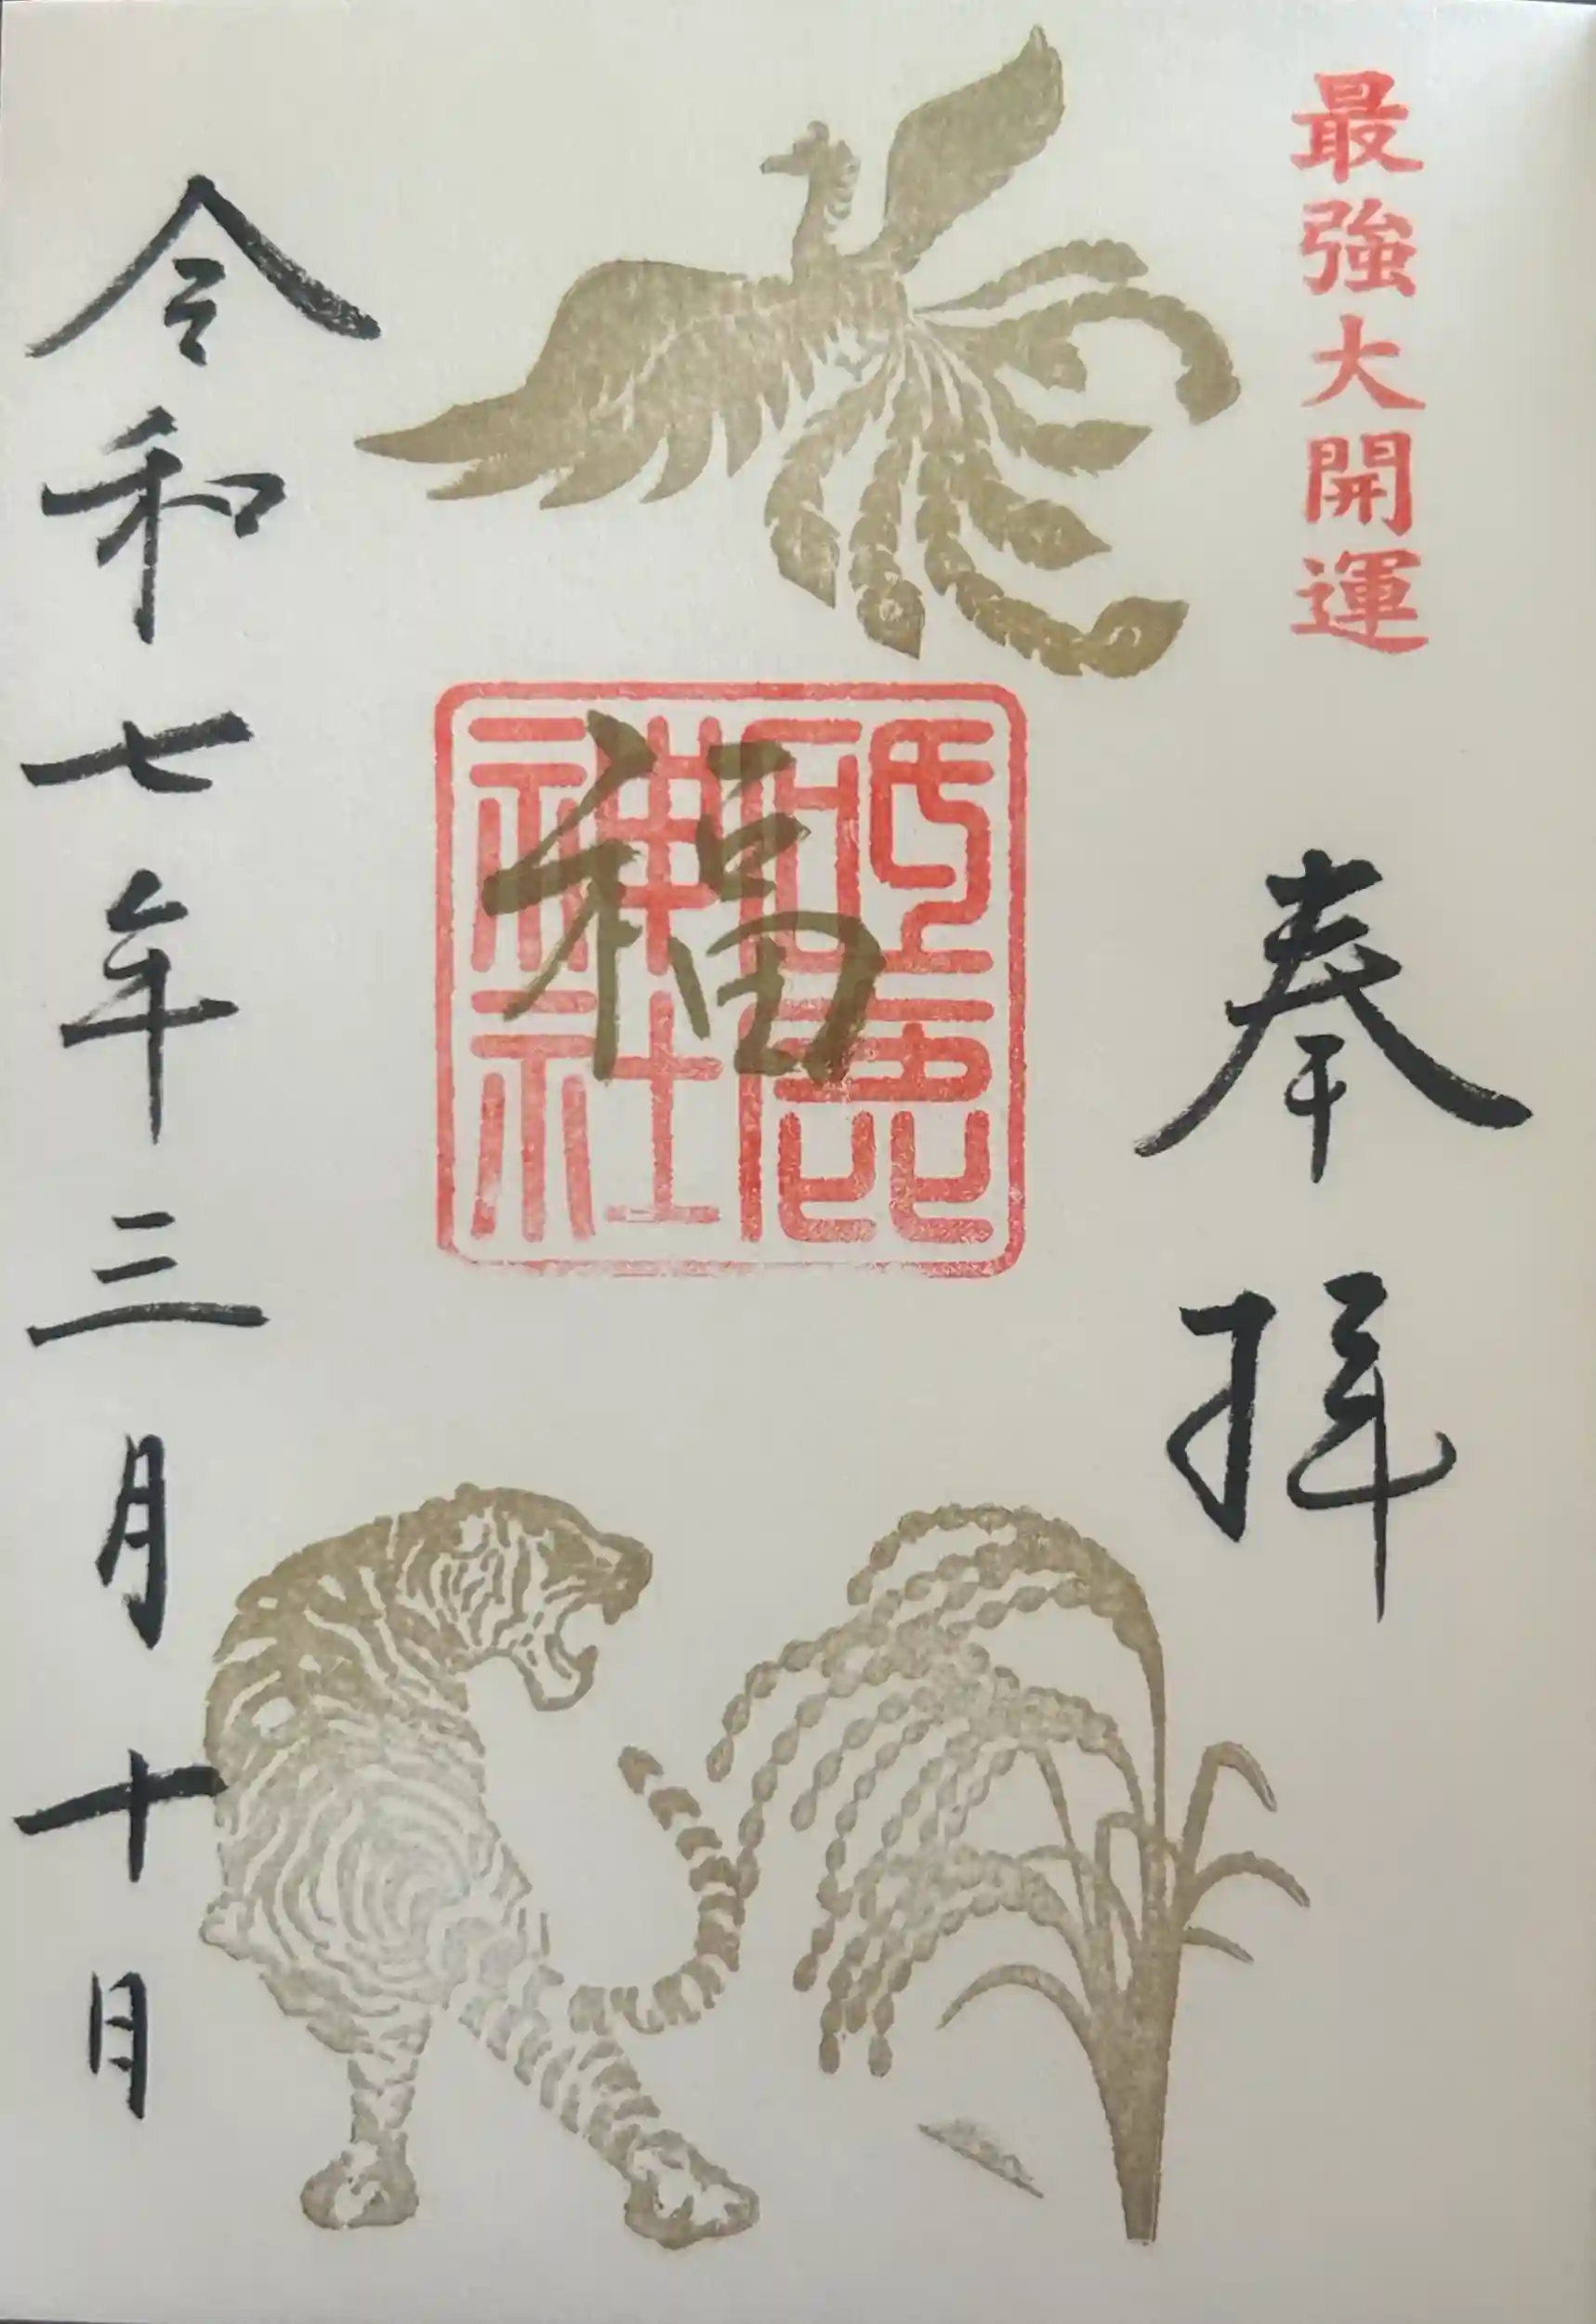 最強大開運
奉拝
砥鹿
神社
福
令和七年三月十日